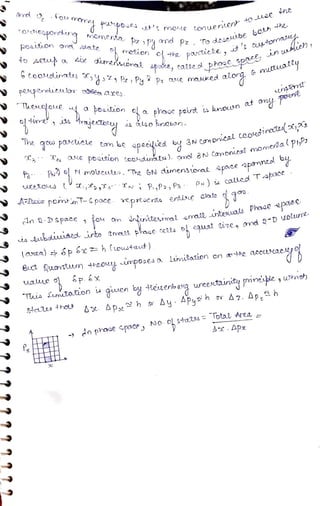 and z. For many purposes it's more convenient to use the
corresponding momenta Px, Py and Pz. To describe both the
position and state of motion of the particle, it's customary
to setup a six dimensional space, called phase space, in which,
6 coordinates x, y, z, Px, Py & Pz are marked along 6 mutually
perpendicular axes.
Therefore if a position of a phase point is known at any instant
of time, its trajectory is also known.
The gas particle can be specified by 3N canonical coordinates x1, x2
x3 - xN are position coordinates and 3N canonical momenta (P1, P2
P3 - PN) of N molecules. The 6N dimensional space spanned by
vectors (x1, x2, x3 - xN ; P1, P2, P3 PN) is called T space
A point in T-space represents entire state of gas.
In 2-D space, for an infinitesimal small intervals Phase space
is subdivided into small phase cells of equal size, and 2-D volume
(area) → δp δx = h (constant)
But Quantum theory imposes a limitation on the accuracy of
value of δp δx
This limitation is given by Heisenberg uncertainity principle, which
states that Δx Δpx ≥ h or Δy. Δpy ≥ h or Δz. Δpz ≥ h
→ In phase space, No of states = Total Area
Δx . Δpx
Px
x